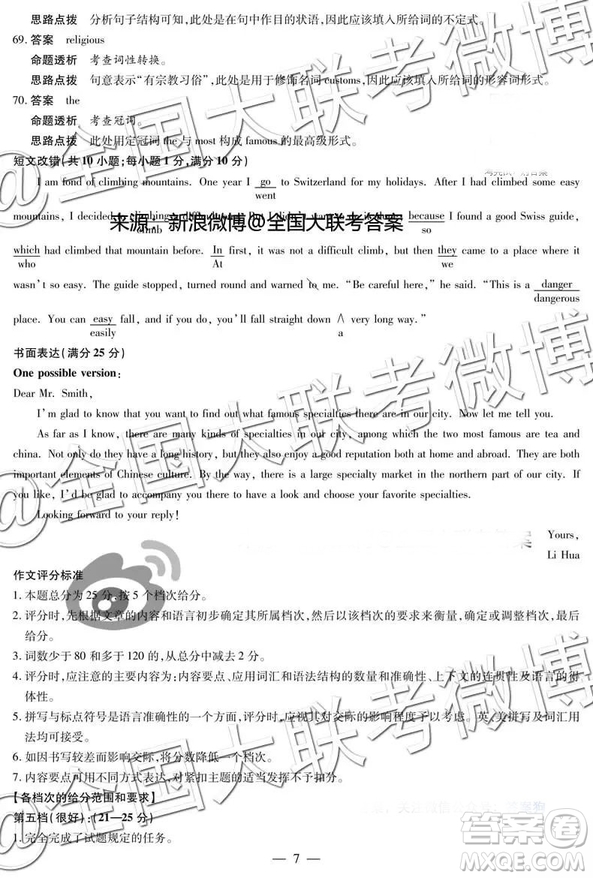 思路点拨 分析句子结构可知,此处是在句中作目的状语,因此应该填入所给词的不定式。
69. 答案 religious
命题透析 考查词性转换。
思路点拨 句意表示“有宗教习俗”,此处是用于修饰名词 customs,因此应该填入所给词的形容词形式。
70. 答案 the
命题透析 考查冠词。
思路点拨 此处用定冠词 the 与 most 构成 famous 的最高级形式。
短文改错(共 10 小题;每小题 1 分,满分 10 分)
I am fond of climbing mountains. One year I go to Switzerland for my holidays. After I had climbed some easy
went
mountains, I decided because I found a good Swiss guide,
climb so
来源:新浪微博@全国大联考答案
which had climbed that mountain before. In first, it was not a difficult climb, but then they came to a place where it
who At we
wasn't so easy. The guide stopped, turned round and warned to me. “Be careful here,” he said. “This is a danger
dangerous
place. You can easy fall, and if you do, you'll fall straight down ∧ very long way.”
easily a
书面表达(满分 25 分)
One possible version:
Dear Mr. Smith,
I'm glad to know that you want to find out what famous specialties there are in our city. Now let me tell you.
As far as I know, there are many kinds of specialties in our city, among which the two most famous are tea and
china. Not only do they have a long history, but they also enjoy a good reputation both at home and abroad. They are both
important elements of Chinese culture. Meanwhile, there is a large specialty market in the northern part of our city. If
you like, I'd be glad to accompany you there to have a look and choose your favorite specialties.
Looking forward to your reply!
Yours,
Li Hua
作文评分标准
1. 本题总分为 25 分,按 5 个档次给分。
2. 评分时,先根据文章的内容和语言初步确定其所属档次,然后以该档次的要求来衡量,确定或调整档次,最后
给分。
3. 词数少于 80 和多于 120 的,从总分中减去 2 分。
4. 评分时,应注意的主要内容为:内容要点、应用词汇和语法结构的数量和准确性、上下文的连贯性及语言的得
体性。
5. 拼写与标点符号是语言准确性的一个方面,评分时,应视其对交际的影响程度予以考虑。英、美拼写及词汇用
法均可接受。
6. 如因书写较差而影响交际,将分数降低一个档次。
7. 内容要点可用不同方式表达,对紧扣主题适当发挥不予扣分。
【各档次的给分范围和要求】
第五档(很好):(21—25 分)
1. 完全完成了试题规定的任务。
— 7 —
@全国大联考微博
@全国大联考微博
答案圈
MXQE.COM